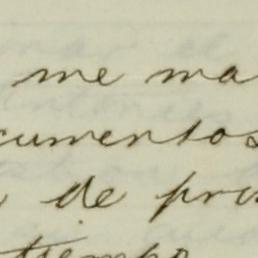 me ma
cumentos
de pri
tiempo